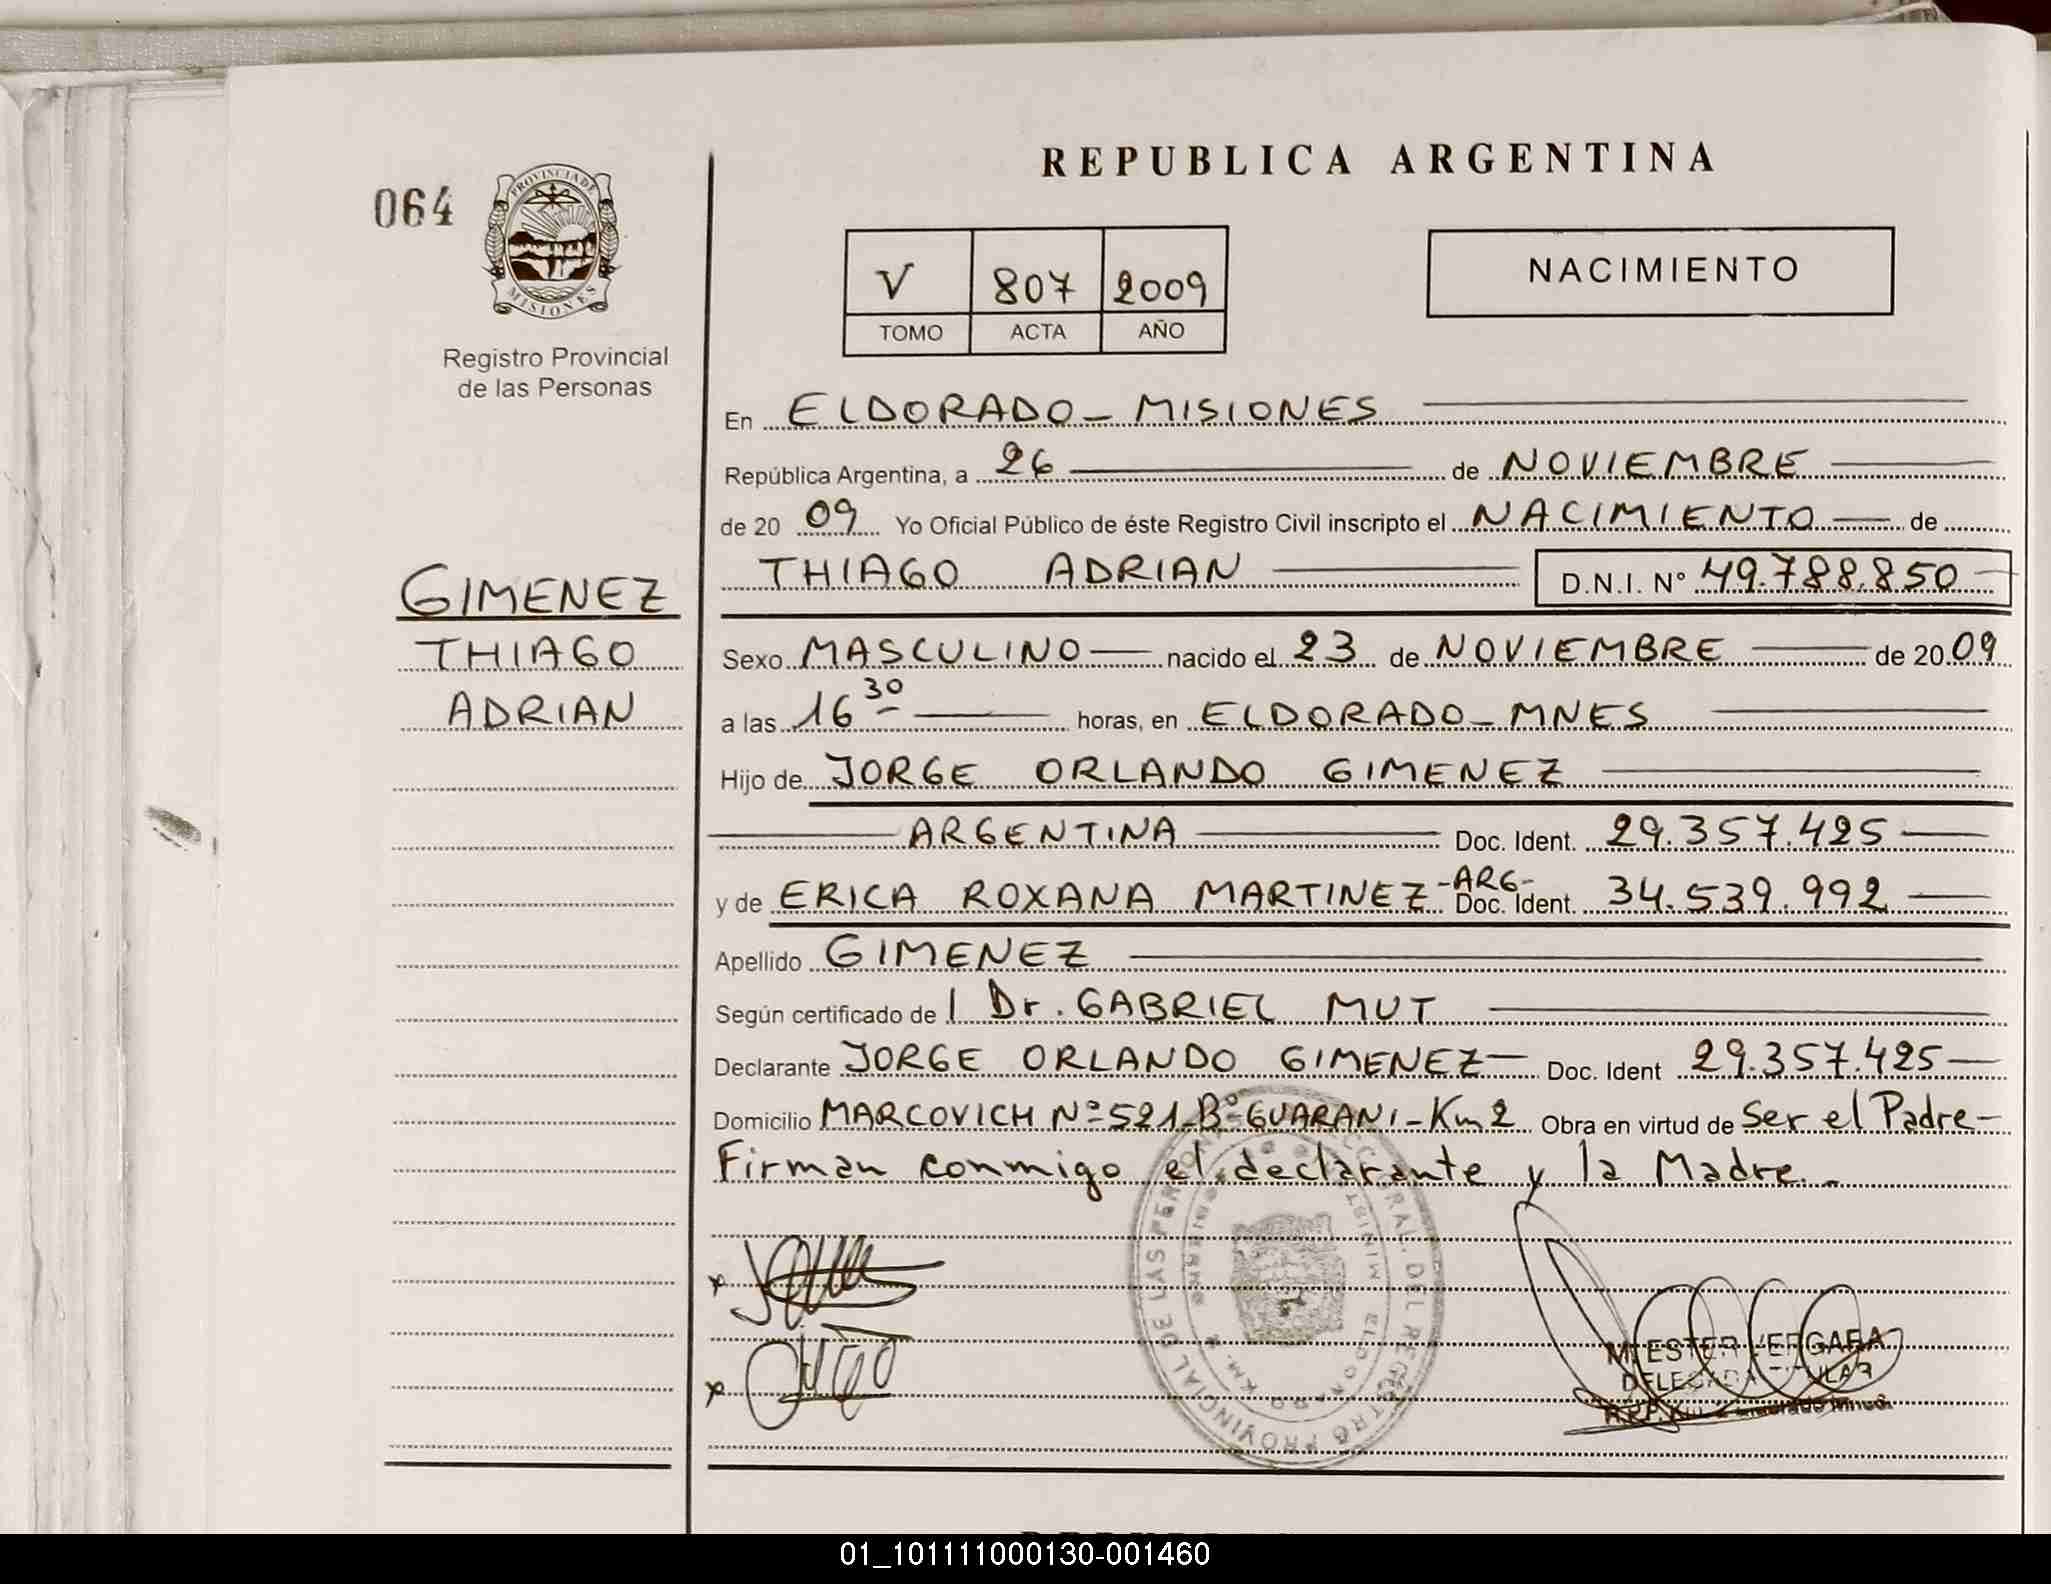 REPUBLICA ARGENTINA
064
PROVINCIA DE
MISIONES
Registro Provincial
de las Personas
V 807 2009
TOMO ACTA AÑO
NACIMIENTO
En ELDORADO - MISIONES
República Argentina, a 26 de NOVIEMBRE
de 20 09 Yo Oficial Público de éste Registro Civil inscripto el NACIMIENTO de
THIAGO ADRIAN D.N.I. N° 49.788.850
GIMENEZ
THIAGO
ADRIAN
Sexo MASCULINO nacido el 23 de NOVIEMBRE de 20 09
a las 16 30 horas, en ELDORADO - MNES
Hijo de JORGE ORLANDO GIMENEZ
ARGENTINA Doc. Ident. 29.357.425
y de ERICA ROXANA MARTINEZ -ARG- Doc. Ident. 34.539.992
Apellido GIMENEZ
Según certificado de l Dr. GABRIEL MUT
Declarante JORGE ORLANDO GIMENEZ Doc. Ident 29.357.425
Domicilio MARCOVICH Nº 521 - Bº GUARANI - Km 2 Obra en virtud de Ser el Padre -
Firman conmigo el declarante y la Madre. -
DEL REGISTRO PROVINCIAL DE LAS PERSONAS
x
x
M. ESTER VERGARA
DELEGADA TITULAR
01_101111000130-001460